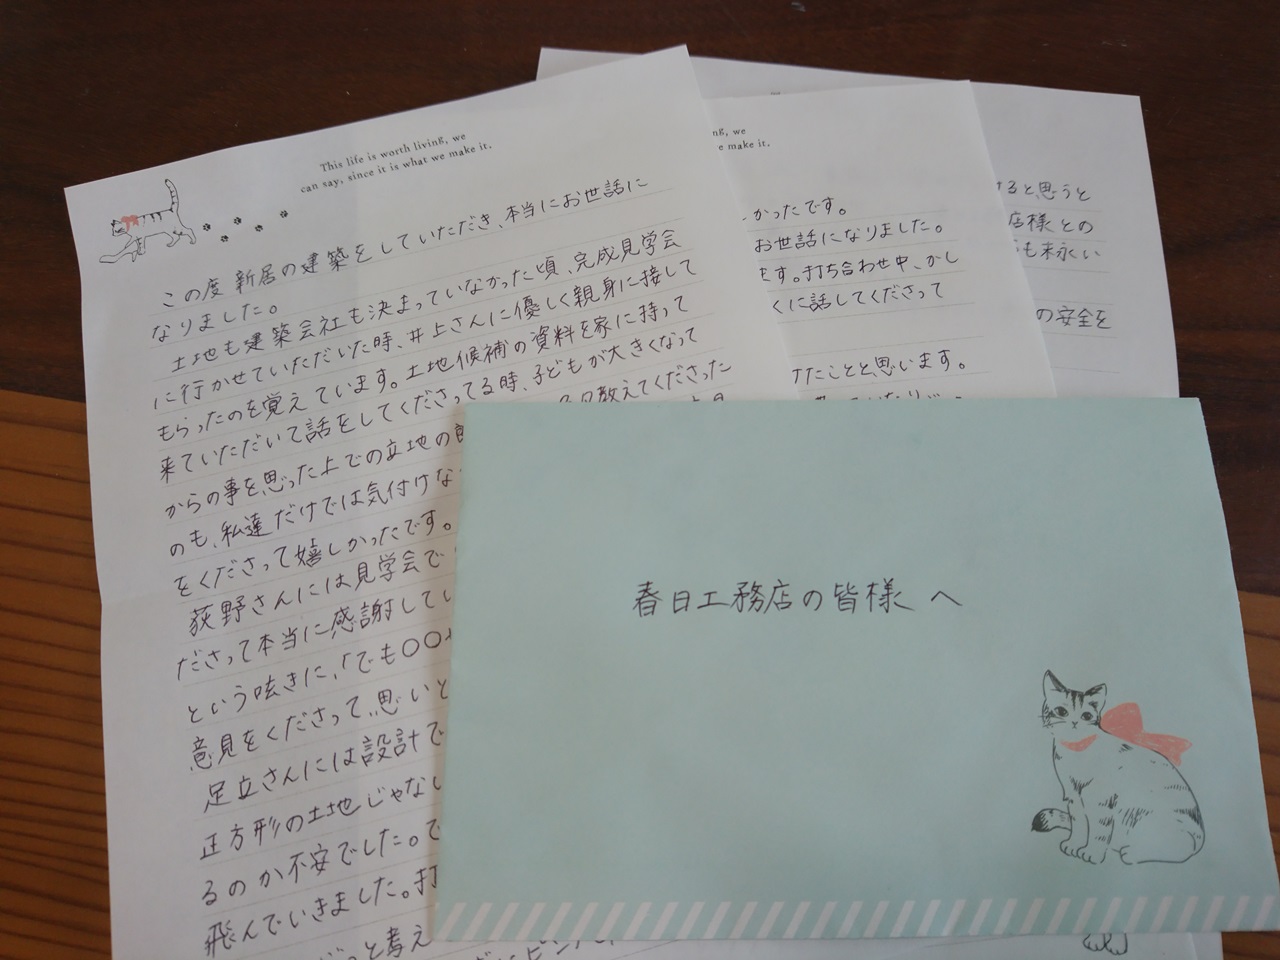 This life is worth living, we
can say, since it is what we make it.
この度 新居の建築をしていただき、本当にお世話に
なりました。
土地も建築会社も決まっていなかった頃、完成見学会
に行かせていただいた時、井上さんに優しく親身に接して
もらったのを覚えています。土地候補の資料を家に持って
来ていただいて話をしてくださってる時、子どもが大きくなって
からの事を思った上での立地の
教えてくださった
のも、私達だけでは気付けな
をくださって嬉しかったです。
荻野さんには見学会で
ださって本当に感謝してい
という呟きに、「でも〇〇
意見をくださって、思いと
足立さんには設計で
正方形の土地じゃない
るのか不安でした。で
飛んでいきました。打
っと考え
ng, we
e make it.
かったです。
お世話になりました。
ます。打ち合わせ中、かし
くに話してくださって
けたことと思います。
けると思うと
店様との
も末永い
の安全を
春日工務店の皆様へ